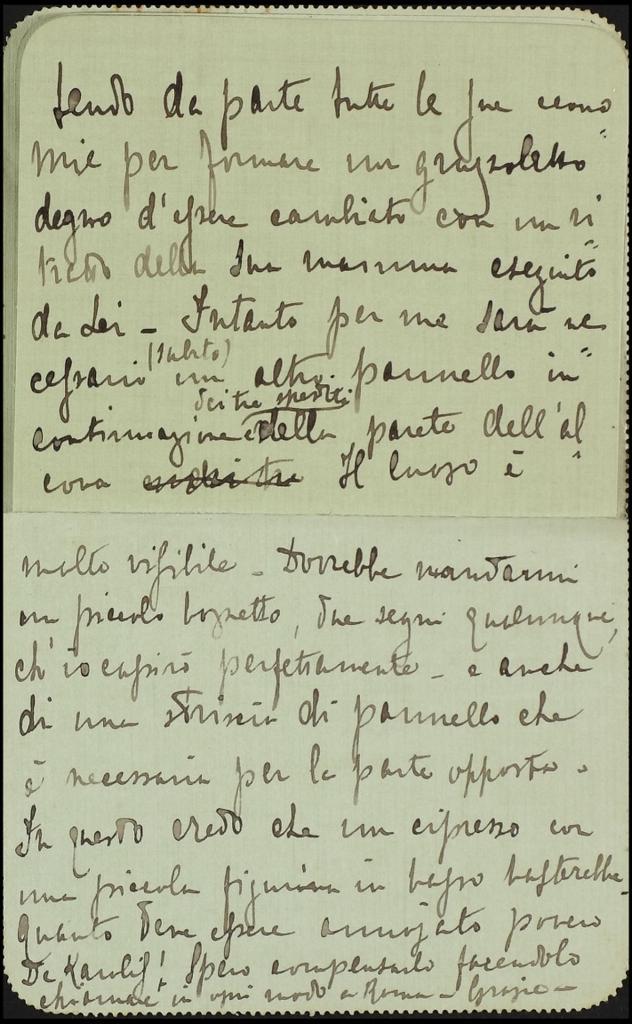 tendo da parte tutte le sue
mie per formare un gruzzoletto
degno d'essere cambiato con un ri
tratto della Sua mamma eseguito
da Lei - Intanto per me sarà ne
(subito)
cessario un altro pannello in
dei tre spediti
continuazione della parete dell'al
cova Il luogo è
molto visibile - Dovrebbe mandarmi
un piccolo bozzetto, due segni qualunque,
ch'io capirò perfettamente - e anche
di una striscia di pannello che
è necessaria per la parte opposta -
In questo credo che un cipresso con
una piccola figurina in basso basterebbe -
Quanto deve essere annojato povero
De Karolis! Spero compensarlo facendolo
chiamare in ogni modo a Roma - Grazie -